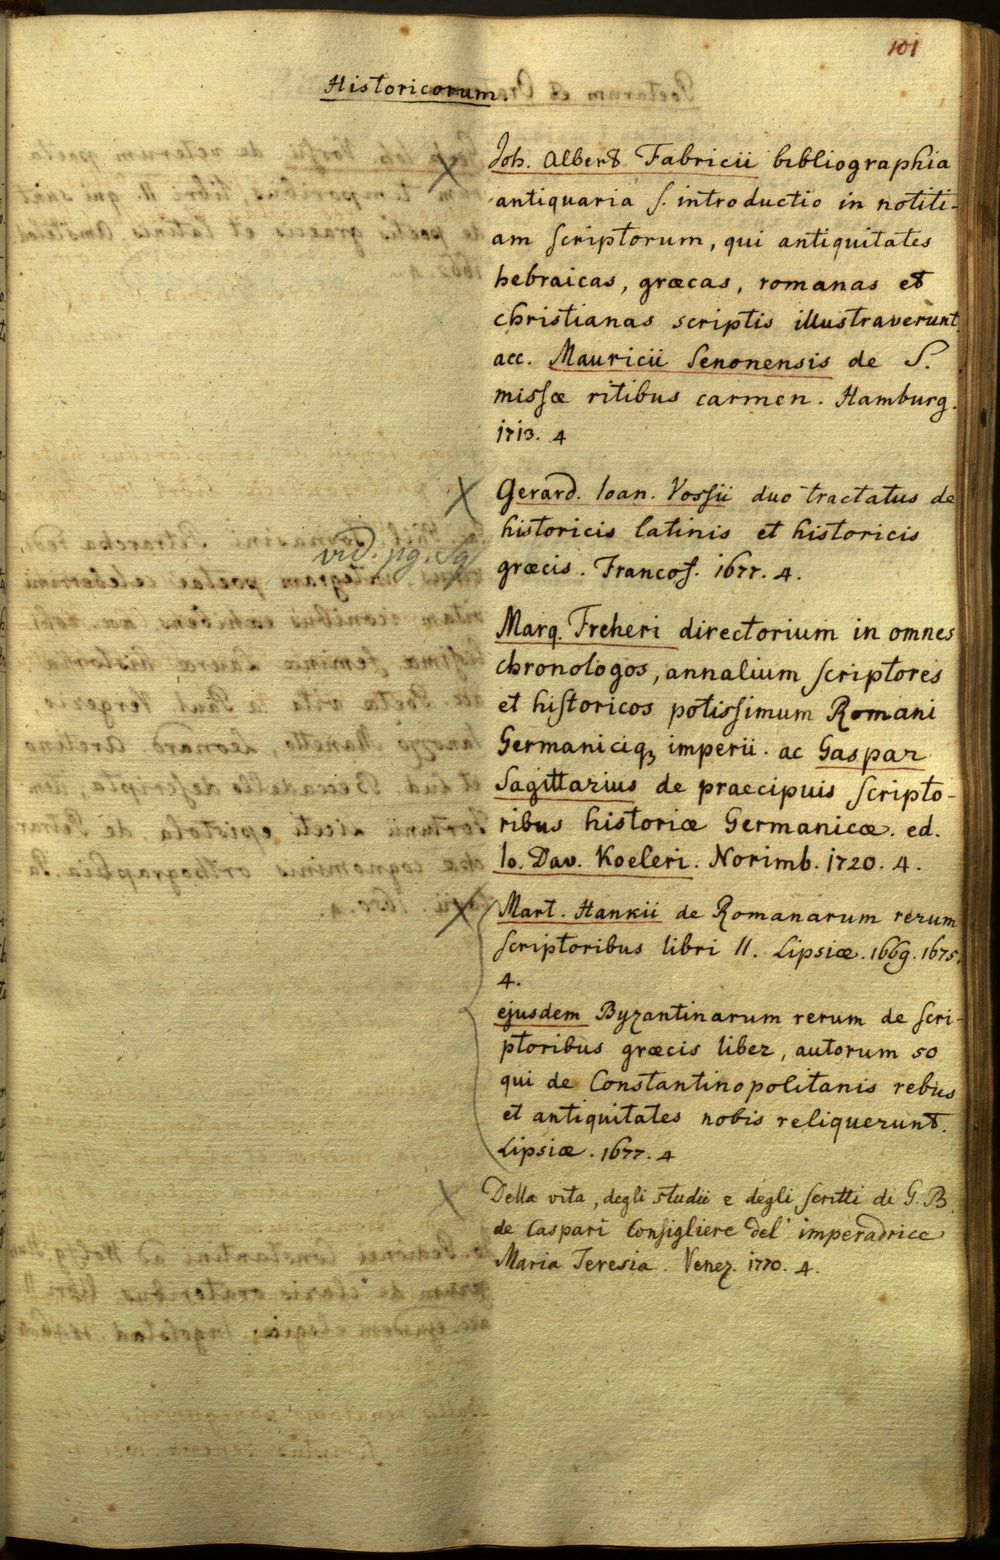 101
Historicorum.
Joh. Albert Fabricii bibliographia
antiquaria ſ. introductio in notiti-
am ſcriptorum, qui antiquitates
hebraicas, græcas, romanas et
christianas scriptis illustraverunt
acc. Mauricii Senonensis de S.
misſæ ritibus carmen. Hamburg.
1713. 4
Gerard. Ioan. Vosſii duo tractatus de
historicis latinis et historicis
græcis. Francof. 1677. 4.
vid. pg.
Marq. Freheri directorium in omnes
chronologos, annalium ſcriptores
et hiſtoricos potisſimum Romani
Germaniciq, imperii. ac Gaspar
Sagittarius de praecipuis ſcripto-
ribus historiæ Germanicæ. ed.
Io. Dav. Koeleri. Norimb. 1720. 4.
Mart. Hankii de Romanarum rerum
ſcriptoribus libri II. Lipsiæ. 1669. 1675.
4.
ejusdem Byzantinarum rerum de ſcri-
ptoribus græcis liber, autorum 50
qui de Constantinopolitanis rebus
et antiquitates nobis reliquerunt.
Lipsiæ. 1677. 4
Della vita, degli studii e degli ſcritti di G. B.
de Caspari Conſigliere del' imperadrice
Maria Teresia. Venez. 1770. 4.